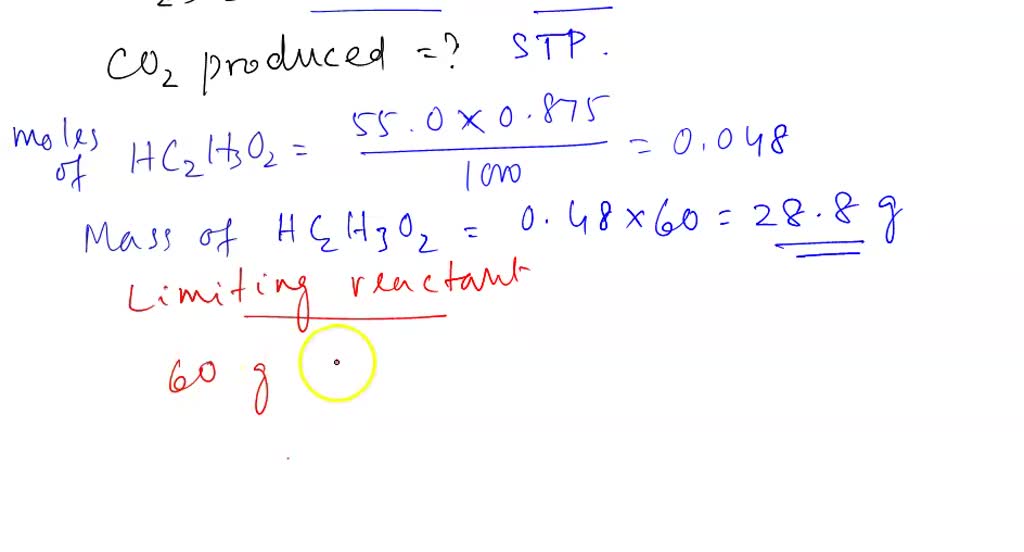 CO₂ produced =? STP.
moles of HC₂H₃O₂ = 55.0 × 0.875 / 1000 = 0.048
Mass of HC₂H₃O₂ = 0.48 × 60 = 28.8 g
Limiting reactant
60 g